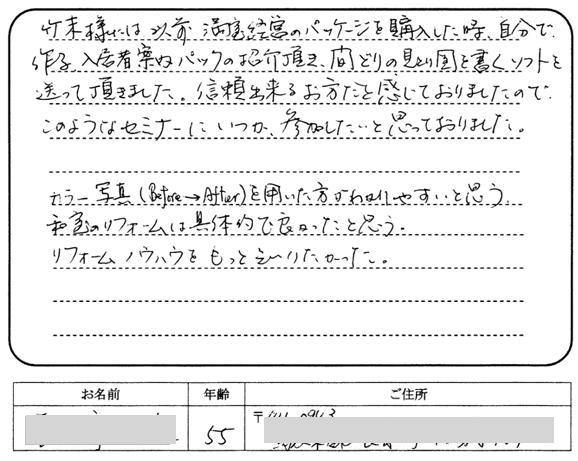 竹末様には以前 満室経営のパッケージを購入した時、自分で
作る、入居者案内パックの紹介頂き、間どりの見とり図を書くソフトを
送って頂きました。信頼出来るお方だと感じておりましたので
このようなセミナーにいつか、参加したいと思っておりました。
カラー写真(Before→After)を用いた方がわかりやすいと思う
和室のリフォームは具体的で良かったと思う。
リフォームノウハウをもっとしりたかった。
お名前 年齢 ご住所
55 〒